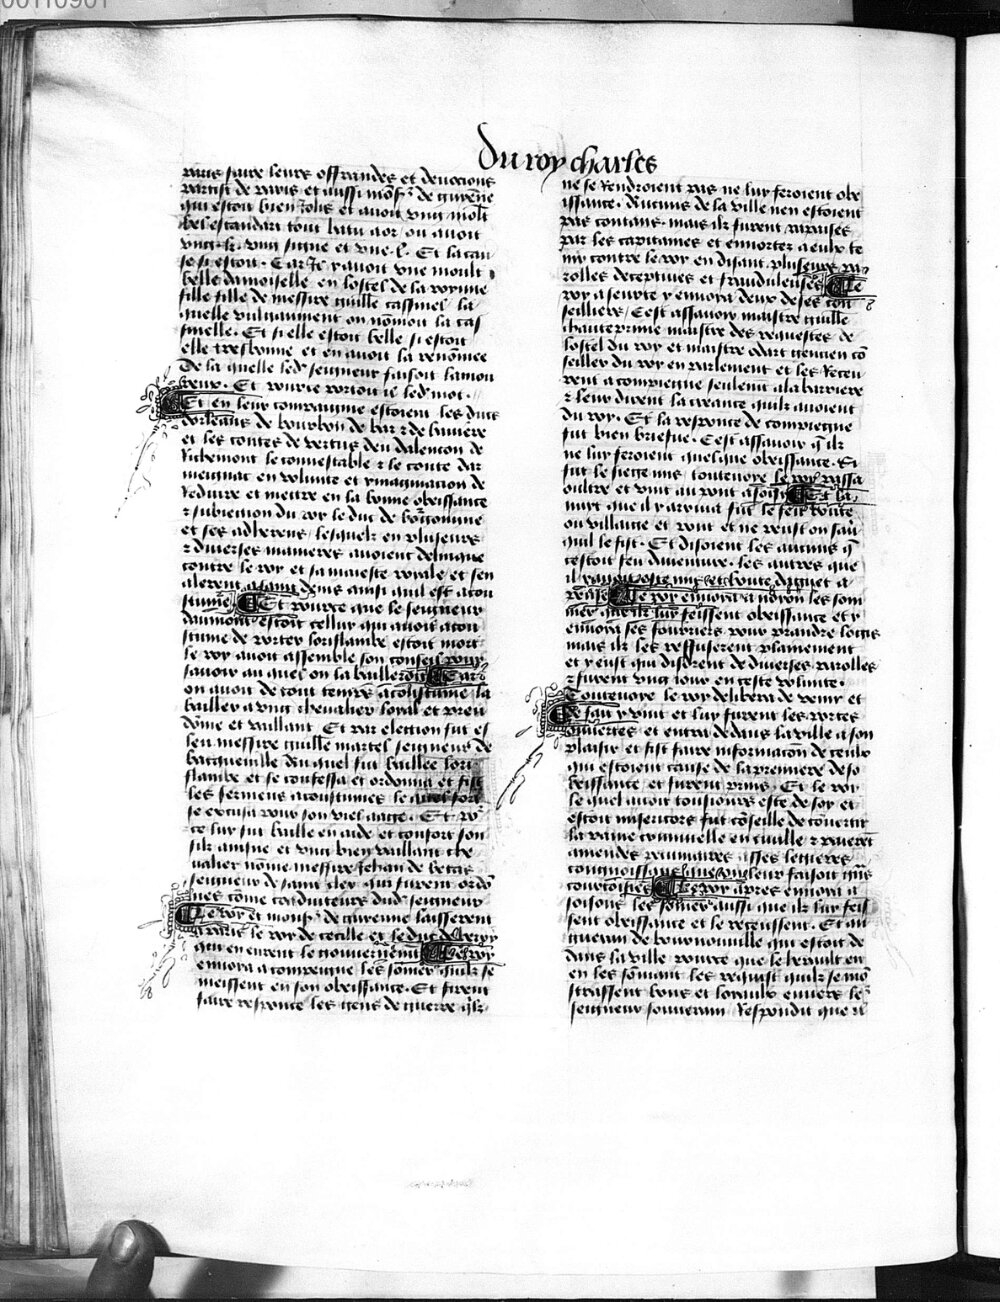 00110901
Du roy charles
paris faire leurs offrandes et deuocions
partist de paris et aussi monsr de guienne
qui estoit bien jolis et auoit ung moult
bel estandart tout batu a or ou auoit
ung .k. ung signe et une .l. Et la cau
se si estoit . Car il y auoit une moult
belle damoiselle en lostel de la royne
fille fille de messire guille cassinel la
quelle vulgaument on nommoit la cas
sinelle . Et si elle estoit belle si estoit
elle tresbonne et en auoit la renommee
De la quelle led seigneur faisoit lamou
reux . Et pource portoit il led mot .
Et en leur compaignie estoient les ducs
dorleans de bourbon de bar & de bauiere
et les contes de vertus deu dalencon de
Richemont le connestable & le conte dar
meignac en volunte et ymaginacion de
Reduire et mettre en la bonne obeissance
& subiection du roy le duc de bourgongne
et ses adherens lesquelz en pluseurs
& diuerses manieres auoient delinque
contre le roy et sa maieste royale et sen
alerent a saint denis ainsi quil est acou
stume Et pource que le seigneur
daumont estoit cellui qui auoit acou
stume de porter loriflambe estoit mort
le roy auoit assemble son conseil pour
sauoir au quel on la bailleroit Car
on auoit de tout temps acoustume la
bailler a ung cheualier loyal et preu
domme et vaillant Et par election fut es
leu messire guille martel seigneur de
bacqueuille du quel fut baillee lori
flambe et se confessa et ordonna et fist
les sermens acoustumes le quel fort
se excusa pour son viel aage . Et po
ce luy fut baille en aide et confort son
filz aisne et ung bien vaillant che
ualier nomme messire Jehan de betas
seigneur de saint cler qui furent ordo
nes come conduiteurs dud seigneur
Le roy et monsr de guienne laisserent
a paris le roy de cecille et le duc de berry
qui en eurent le gouuernement Le roy
enuoya a compiegne les somer quilz se
meissent en son obeissance . Et firent
faire responce les gens de guerre qilz
ne se rendroient pas ne luy feroient obe
issance . Aucuns de la ville nen estoient
pas contans . mais ilz furent rapaises
par les capitaines et enhortes a eulx te
nir contre le roy en disant pluseurs pa
rolles deceptiues et frauduleuses Le
roy a seurte y enuoya deux de ses con
seilliers . Cest assauoir maistre guille
chanteprime maistre des requestes de
lostel du roy et maistre odart gencien co
seiller du roy en parlement et les Receu
rent a compiegne seulent a la barriere
& leur dirent la creance quilz auoient
du roy . Et la responce de compiegne
fut bien briefue . Cest assauoir q ilz
ne luy feroient quelque obeissance . Si
fut le siege mis toutevoye le roy passa
oultre et vint au pont a soisy Et la
nuyt que il y arriua fut le feu boute
ou villaige et pont et ne peust on sau
quil le fist . Et disoient les aucuns q
cestoit feu dauenture . les autres que
il y auoit este mis et boute daguet a
pense Le roy enuoya a noyon les som
mer que ilz luy feissent obeissance et y
enuoya ses fourriers pour prandre logis
mais ilz les reffuserent plainement
et y eust qui disdrent de diuerses parolles
& furent ung iour en ceste volunte .
Toutevoye le roy delibera de venir et
de fait y vint et luy furent les portes
ouuertes et entra dedans la ville a son
plaisir et fist faire informacon de ceulx
qui estoient cause de la premiere deso
beissance et furent prins . Et le roy
le quel auoit tousiours este de soy et
estoit misericors fut coseille de couertir
la paine criminelle en ciuille & paierent
amendes pecunaires asses legieres
congnoissans
courtoisies Le roy apres enuoya a
soisons les somer aussi que ilz luy feis
sent obeissance et le receussent . Et an
guerran de bournonuille qui estoit de
dans la ville pource que le herault en
en les somant les requist quilz se mo
strassent bons et loyaulx enuers le
seigneur souuerain Respondit que il